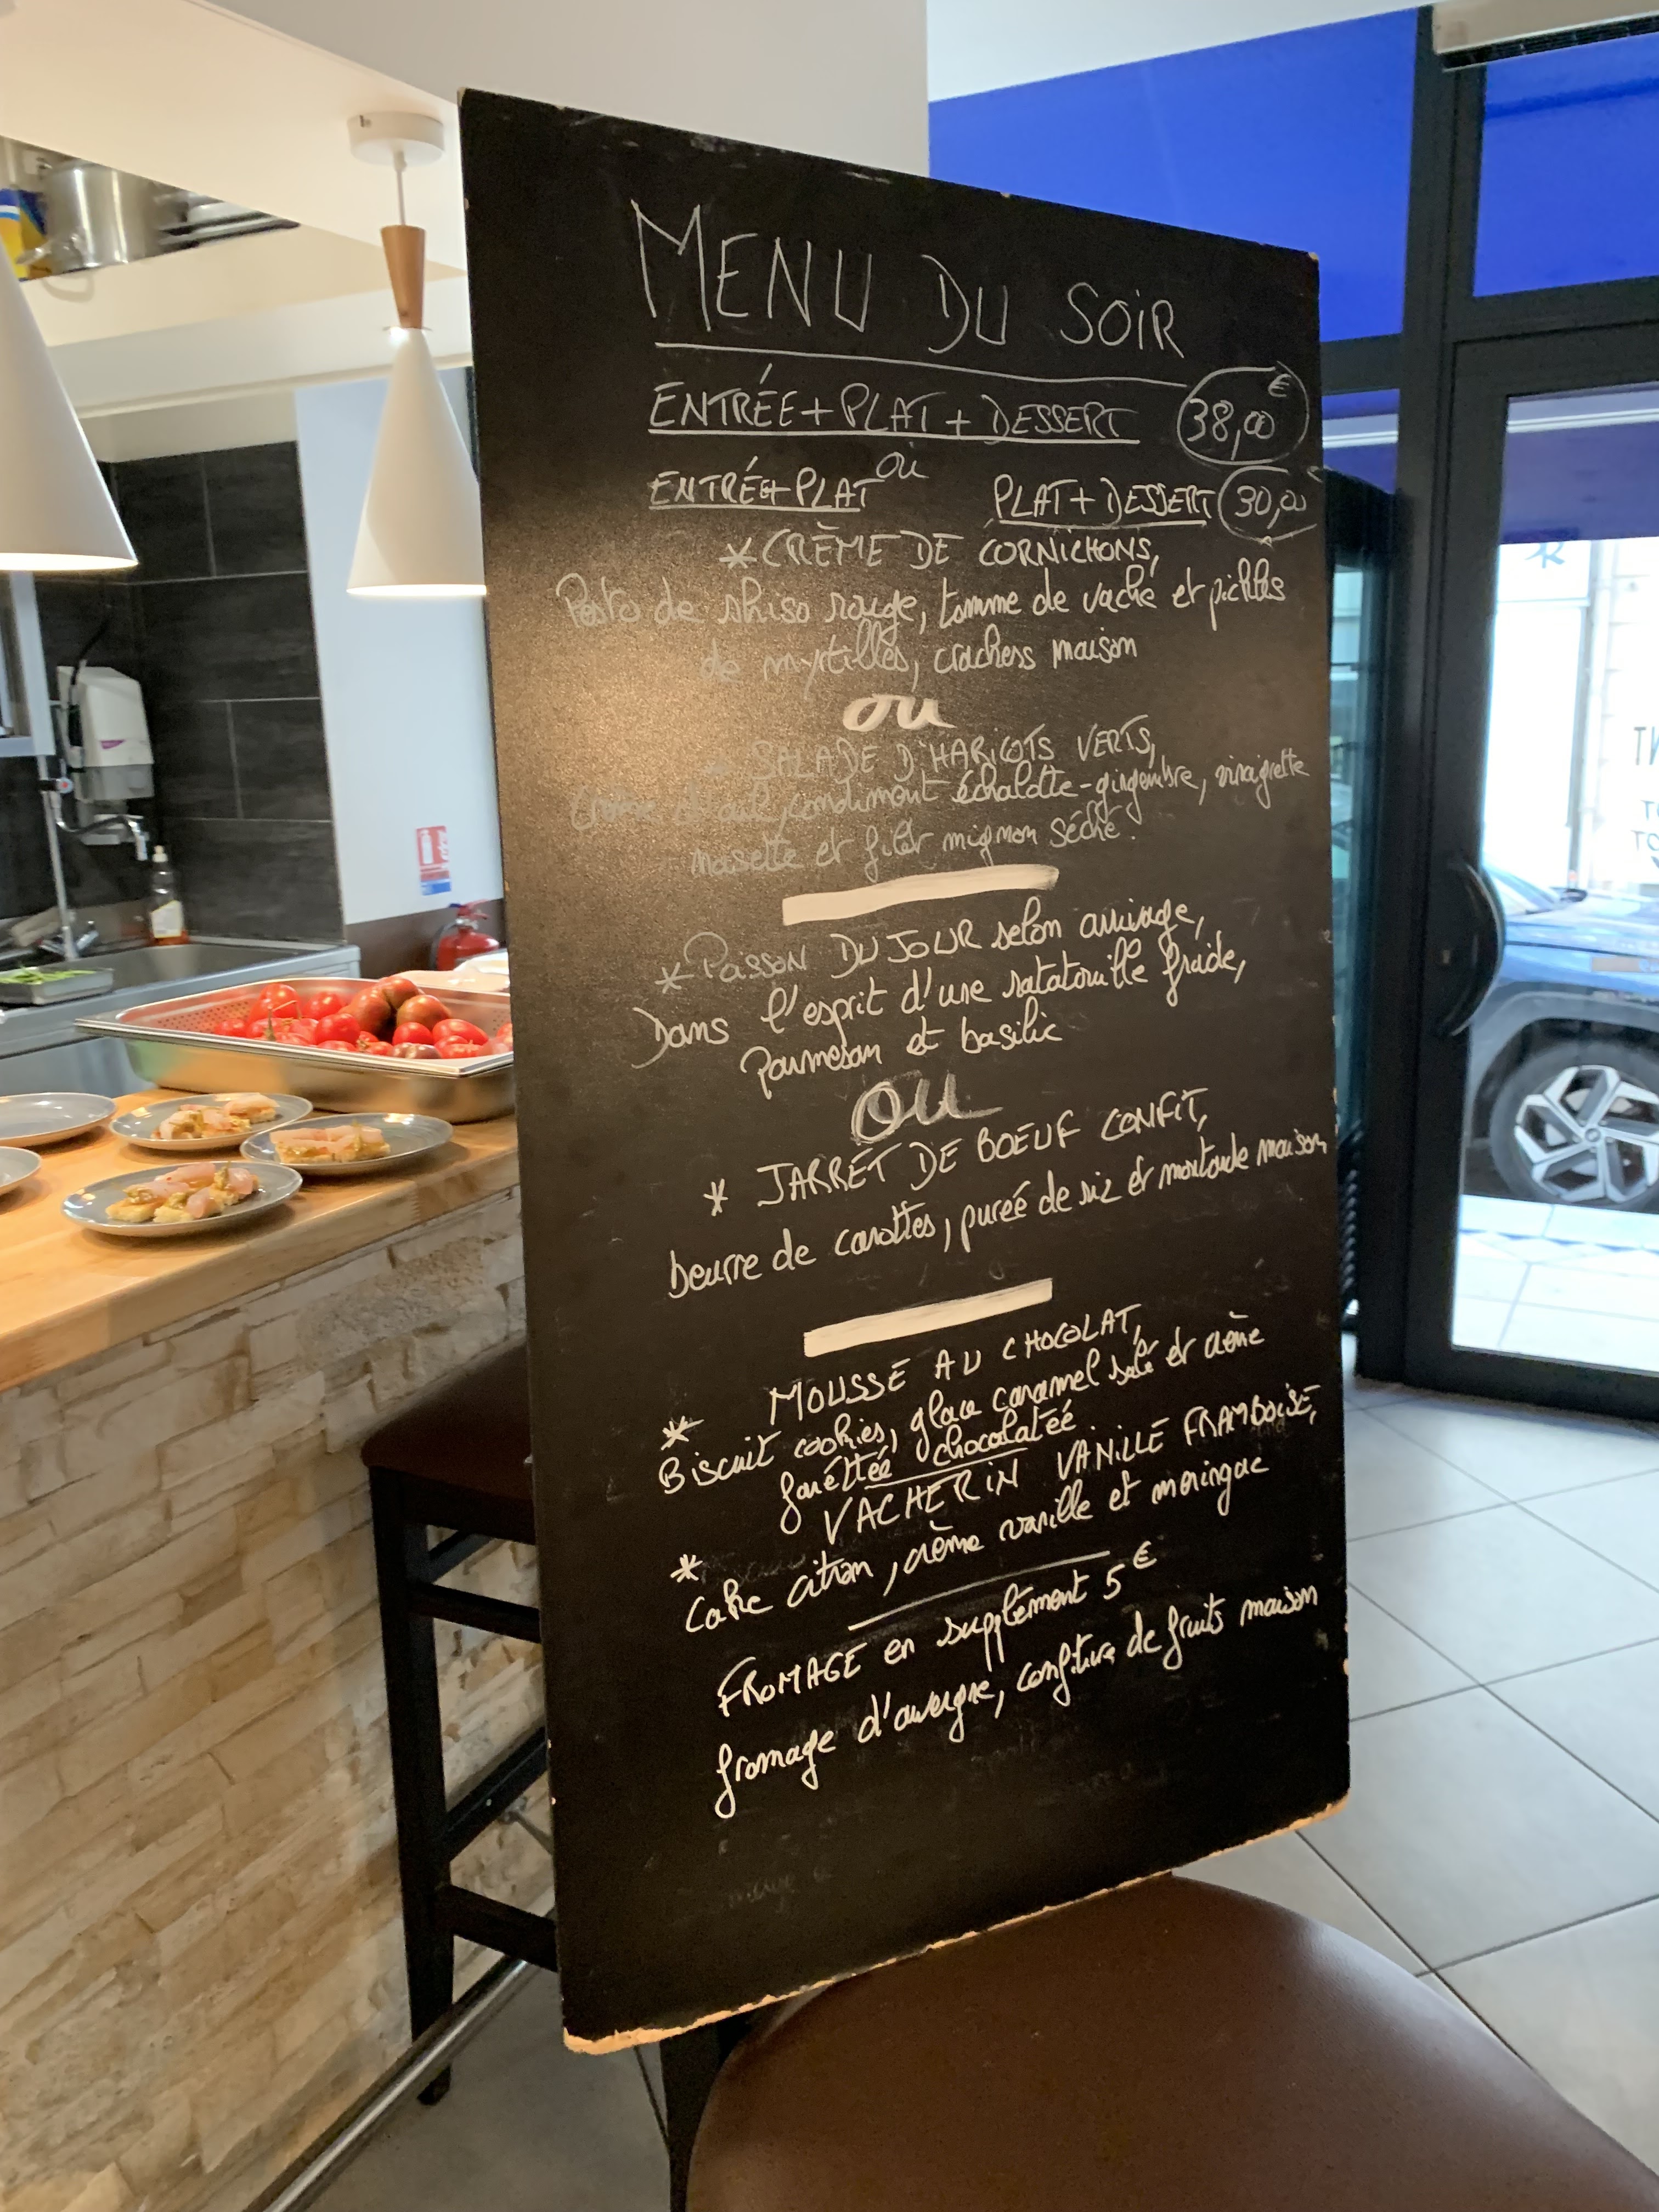 MENU DU SOiR
ENTRÉE + PLAT + DESSERT 38,00€
ou
ENTRÉE + PLAT PLAT + DESSERT 30,00
* CRÈME DE CORNICHONS,
Pesto de shiso rouge, tomme de vache et pickles
de myrtilles, crackers maison
ou
* SALADE D'HARICOTS VERTS,
condiment échalotte-gingembre, vinaigrette
et filet mignon séché.
* POISSON DU JOUR selon arrivage,
Dans l'esprit d'une ratatouille froide,
parmesan et basilic
OU
* JARRET DE BOEUF CONFIT,
beurre de carottes, purée de riz et moutarde maison
* MOUSSE AU CHOCOLAT,
Biscuit cookies, glace caramel salé et crème
fouéttée chocolatée
* VACHERIN VANILLE FRAMBOISE,
Cake citron, crème vanille et meringue
FROMAGE en supplément 5€
fromage d'auvergne, confiture de fruits maison